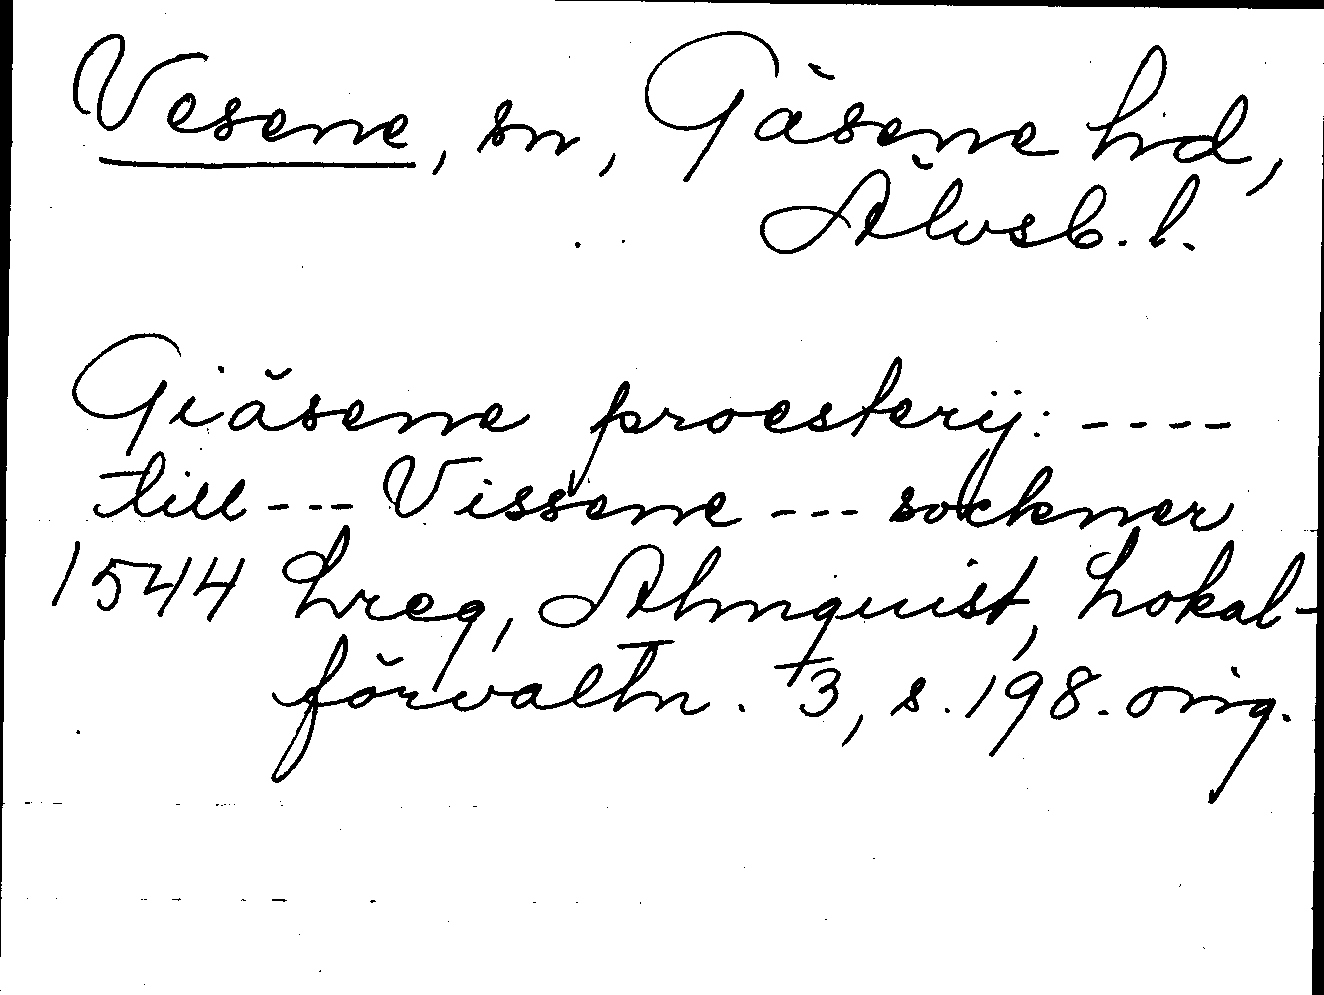 Vesene, sn, Gäsene hd,
Älvsb. l.
Giäsene proesterij: ----
till --- Vissene --- sockner
1544 Lreg, Almquist, Lokal-
förvaltn. 3, s. 198. orig.